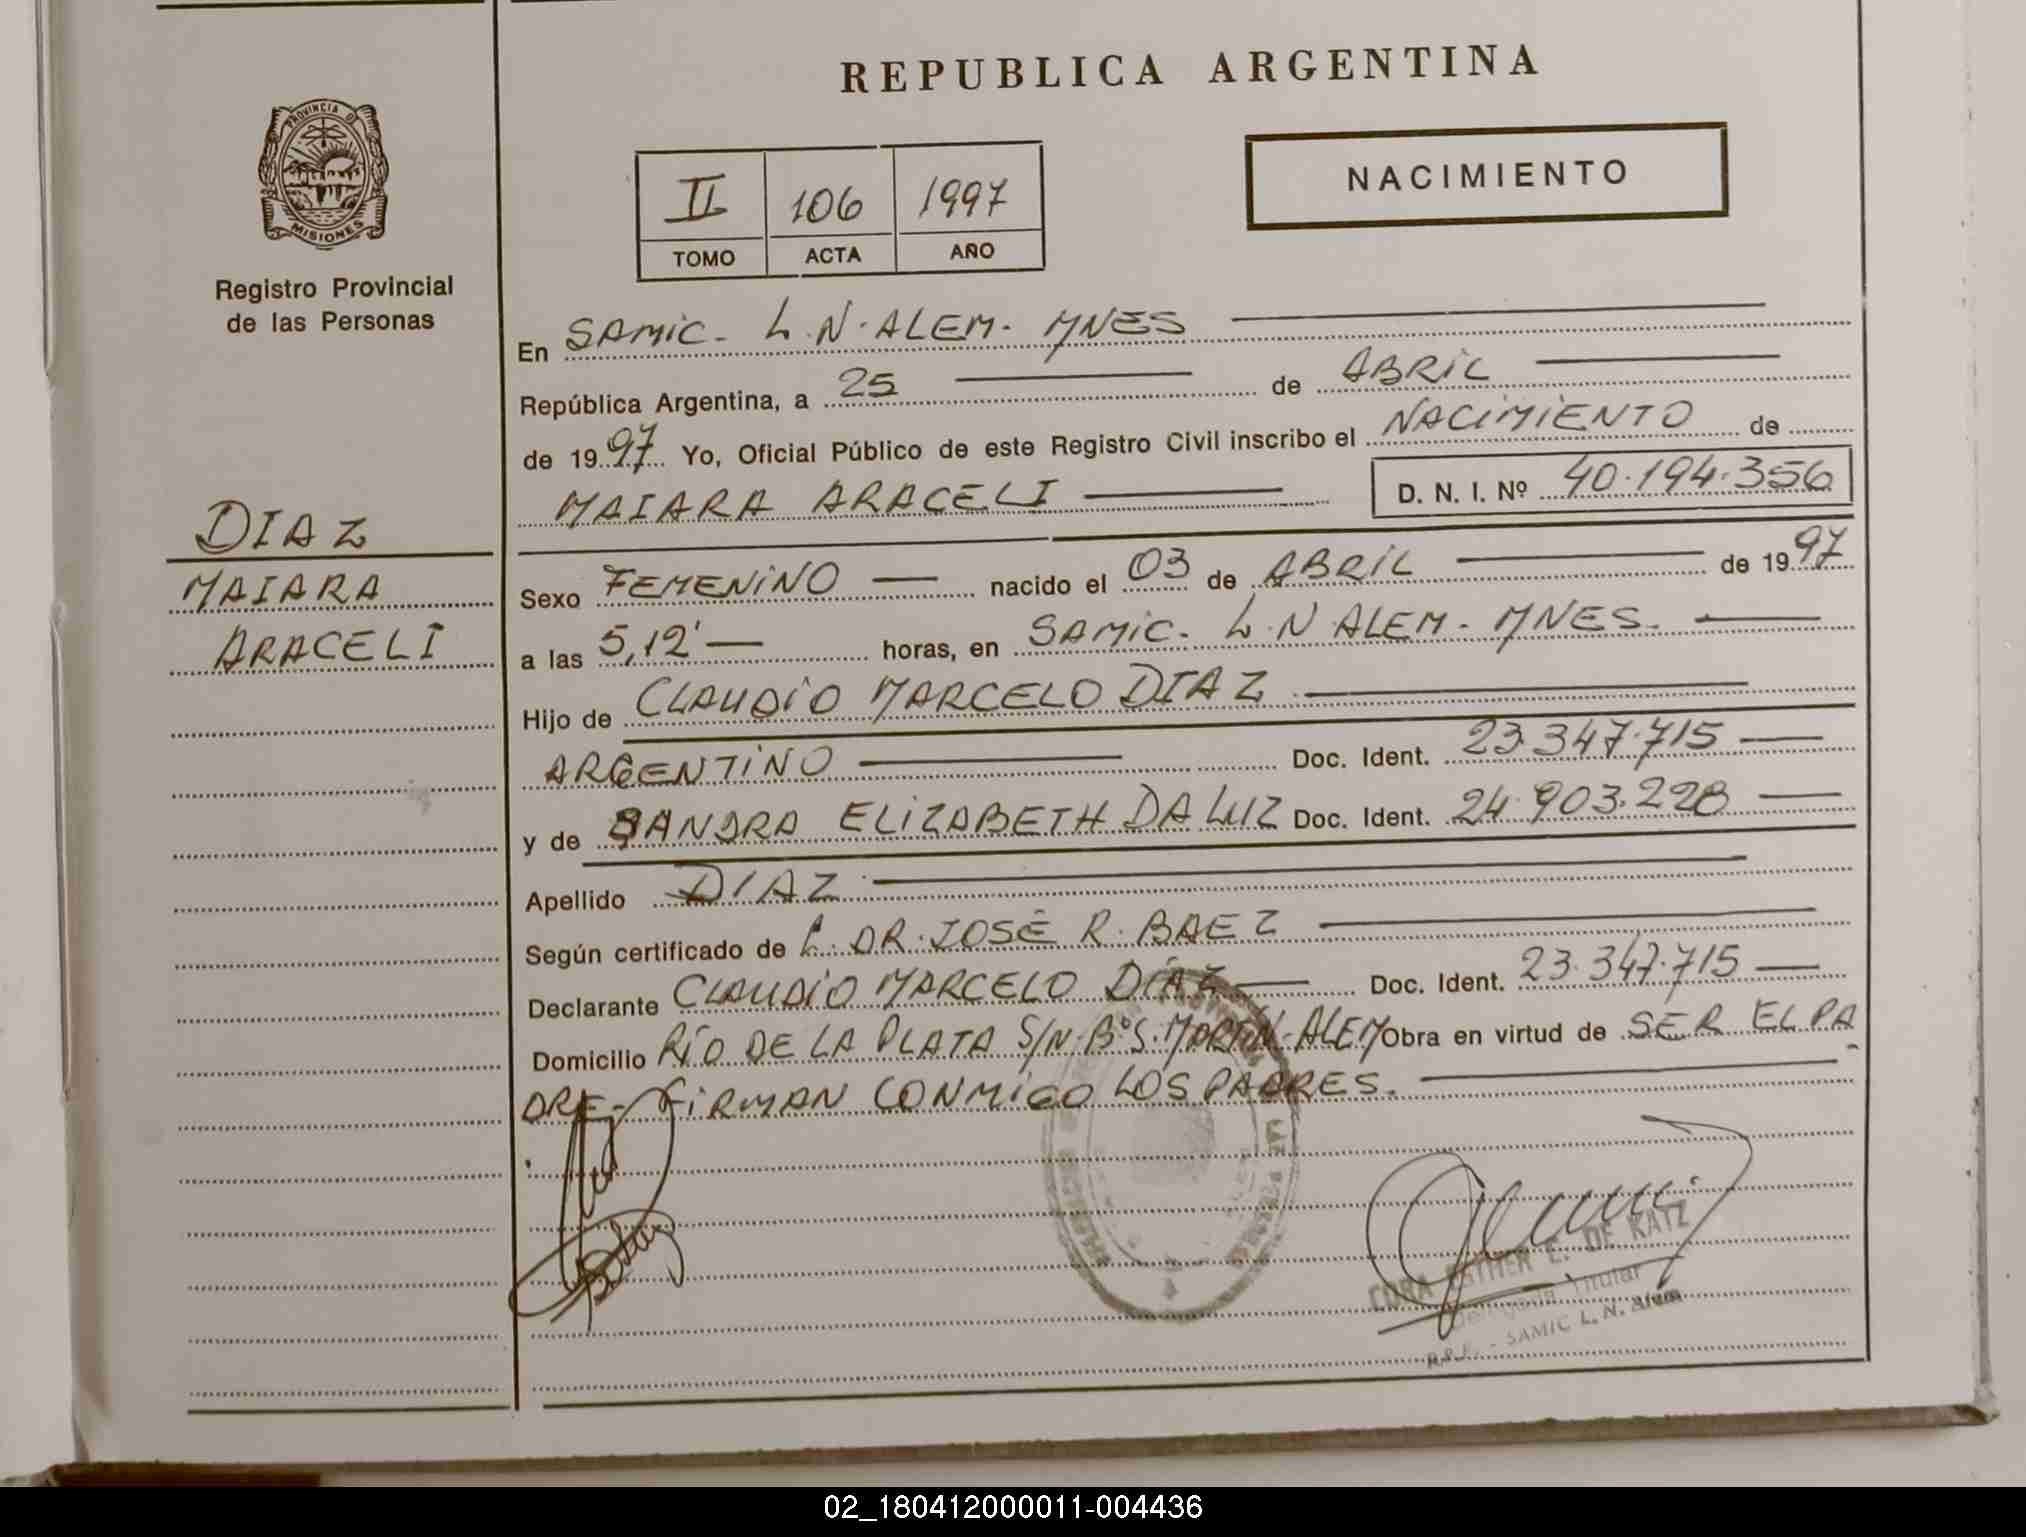 REPUBLICA ARGENTINA
PROVINCIA DE
MISIONES
Registro Provincial
de las Personas
II 106 1997
TOMO ACTA AÑO
NACIMIENTO
En SAMIC. L.N. ALEM. MNES
República Argentina, a 25 de ABRIL
de 1997 Yo, Oficial Público de este Registro Civil inscribo el NACIMIENTO de
MAIARA ARACELI D. N. I. Nº 40.194.356
DIAZ
MAIARA
ARACELI
Sexo FEMENINO nacido el 03 de ABRIL de 1997
a las 5,12' horas, en SAMIC. L.N ALEM. MNES.
Hijo de CLAUDIO MARCELO DIAZ
ARGENTINO Doc. Ident. 23.347.715
y de SANDRA ELIZABETH DA LUZ Doc. Ident. 24.903.228
Apellido DIAZ
Según certificado de DR. JOSÉ R. BAEZ
Declarante CLAUDIO MARCELO DÍAZ Doc. Ident. 23.347.715
Domicilio RÍO DE LA PLATA S/N. Bº S. MARTÍN. ALEM Obra en virtud de SER EL PA
DRE. FIRMAN CONMIGO LOS PADRES.
CORA ESTHER E. DE KATZ
Delegada Titular
R.P.P. - SAMIC L. N. Alem
02_180412000011-004436